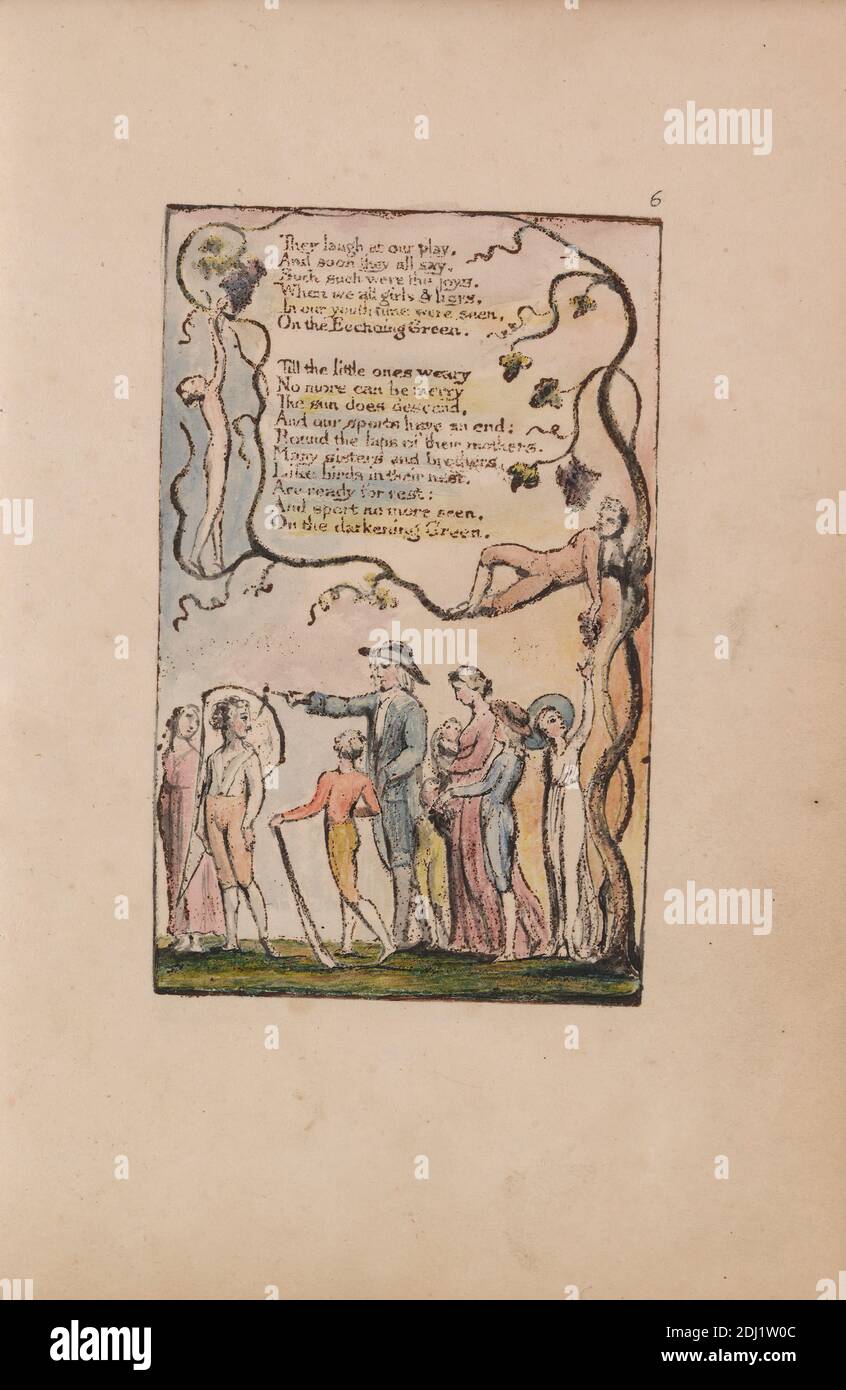 6
They laugh at our play,
And soon they all say,
Such such were the joys,
When we all girls & boys,
In our youth time were seen,
On the Ecchoing Green.
Till the little ones weary
No more can be merry
The sun does descend,
And our sports have an end:
Round the laps of their mothers,
Many sisters and brothers,
Like birds in their nest,
Are ready for rest:
And sport no more seen,
On the darkening Green.
alamy
alamy
alamy
alamy
a a a
a a
a a a
a a
a a a
alamy
Image ID: 2DJ1W0C
www.alamy.com